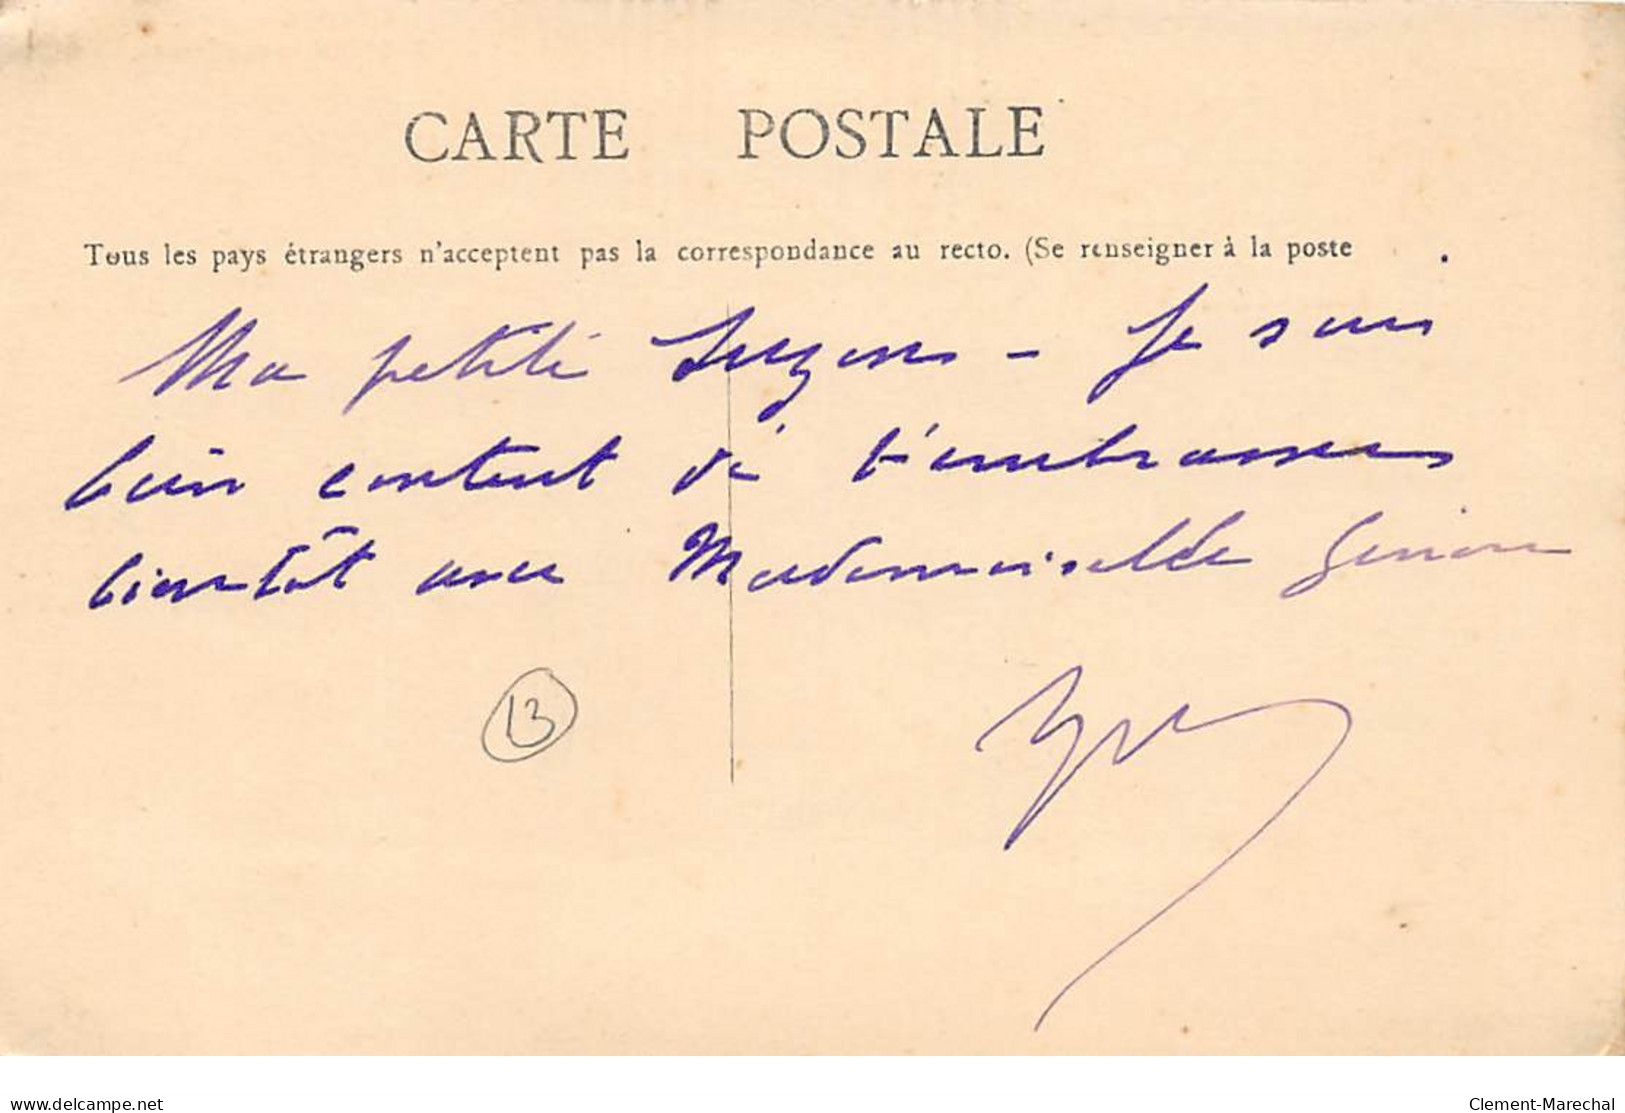 CARTE POSTALE
Tous les pays étrangers n'acceptent pas la correspondance au recto. (Se renseigner à la poste
Ma petite Suzon – Je suis
bien content de t'embrasser
bientôt avec Mademoiselle
13
delcampe.net
Clement-Marechal